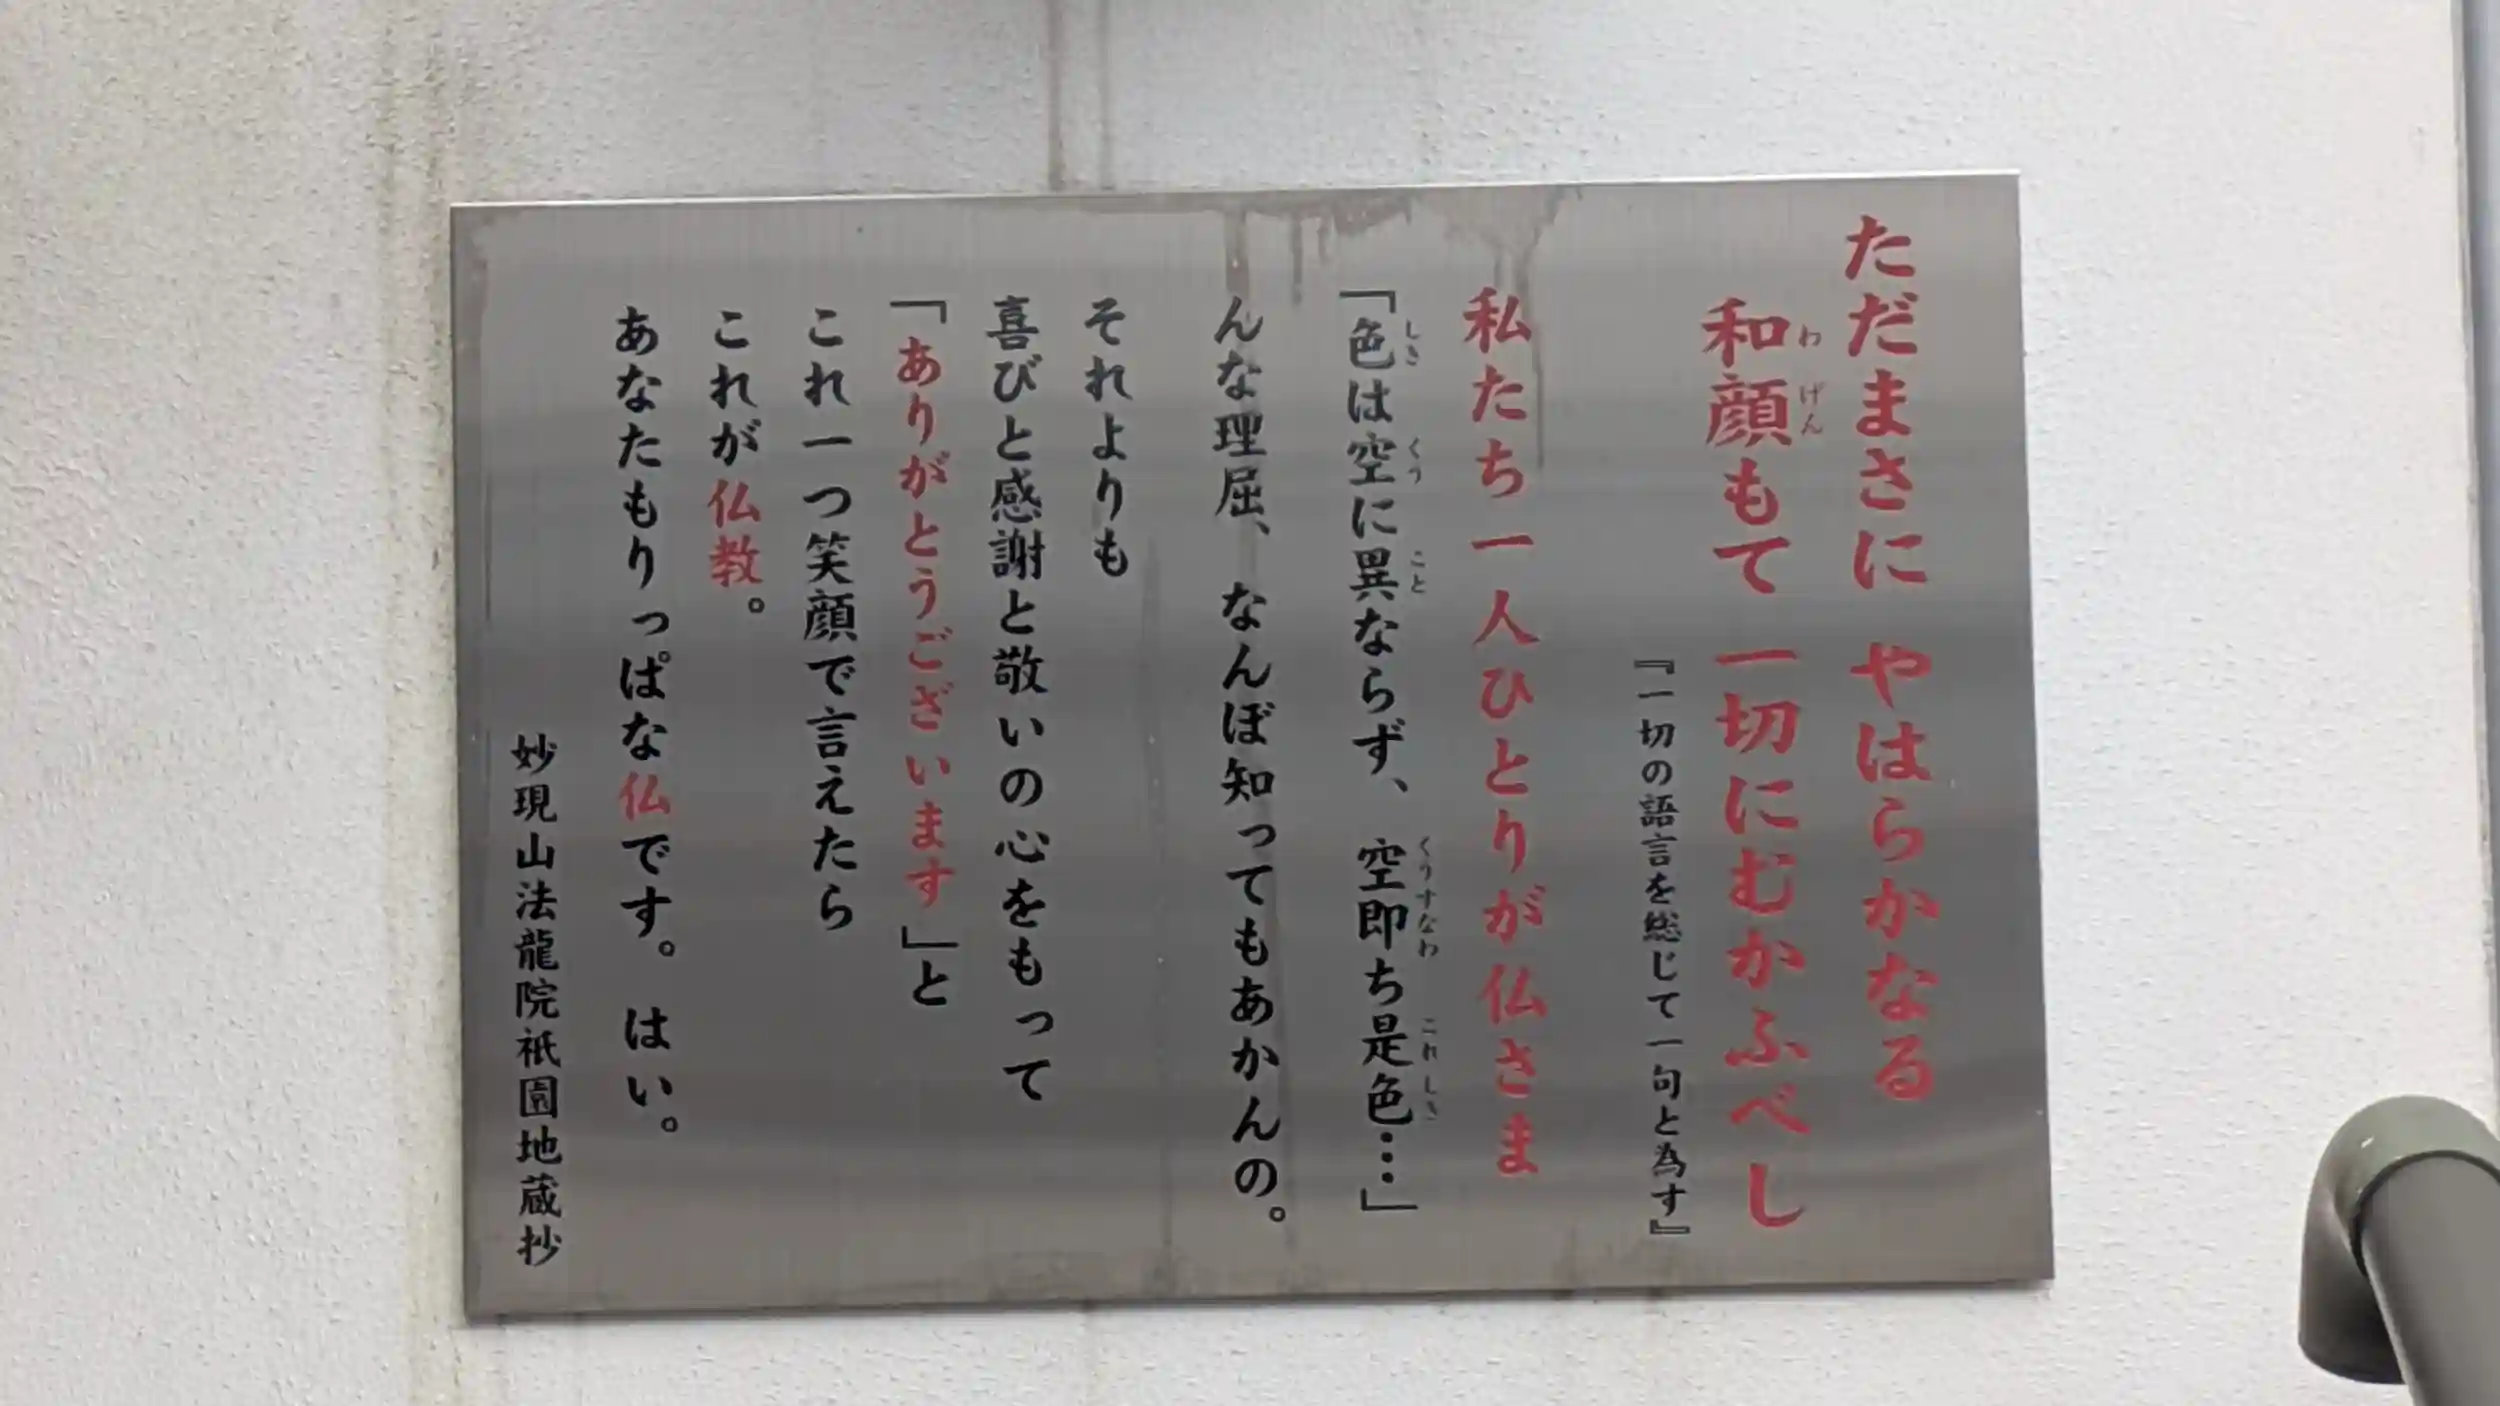 ただまさに やはらかなる
和顔もて 一切にむかふべし
わげん
『一切の語言を総じて一句と為す』
私たち一人ひとりが仏さま
「色は空に異ならず、空即ち是色…」
しき くう こと くうすなわ これ しき
んな理屈、なんぼ知ってもあかんの。
それよりも
喜びと感謝と敬いの心をもって
「ありがとうございます」と
これ一つ笑顔で言えたら
これが仏教。
あなたもりっぱな仏です。 はい。
妙現山法龍院祇園地蔵抄